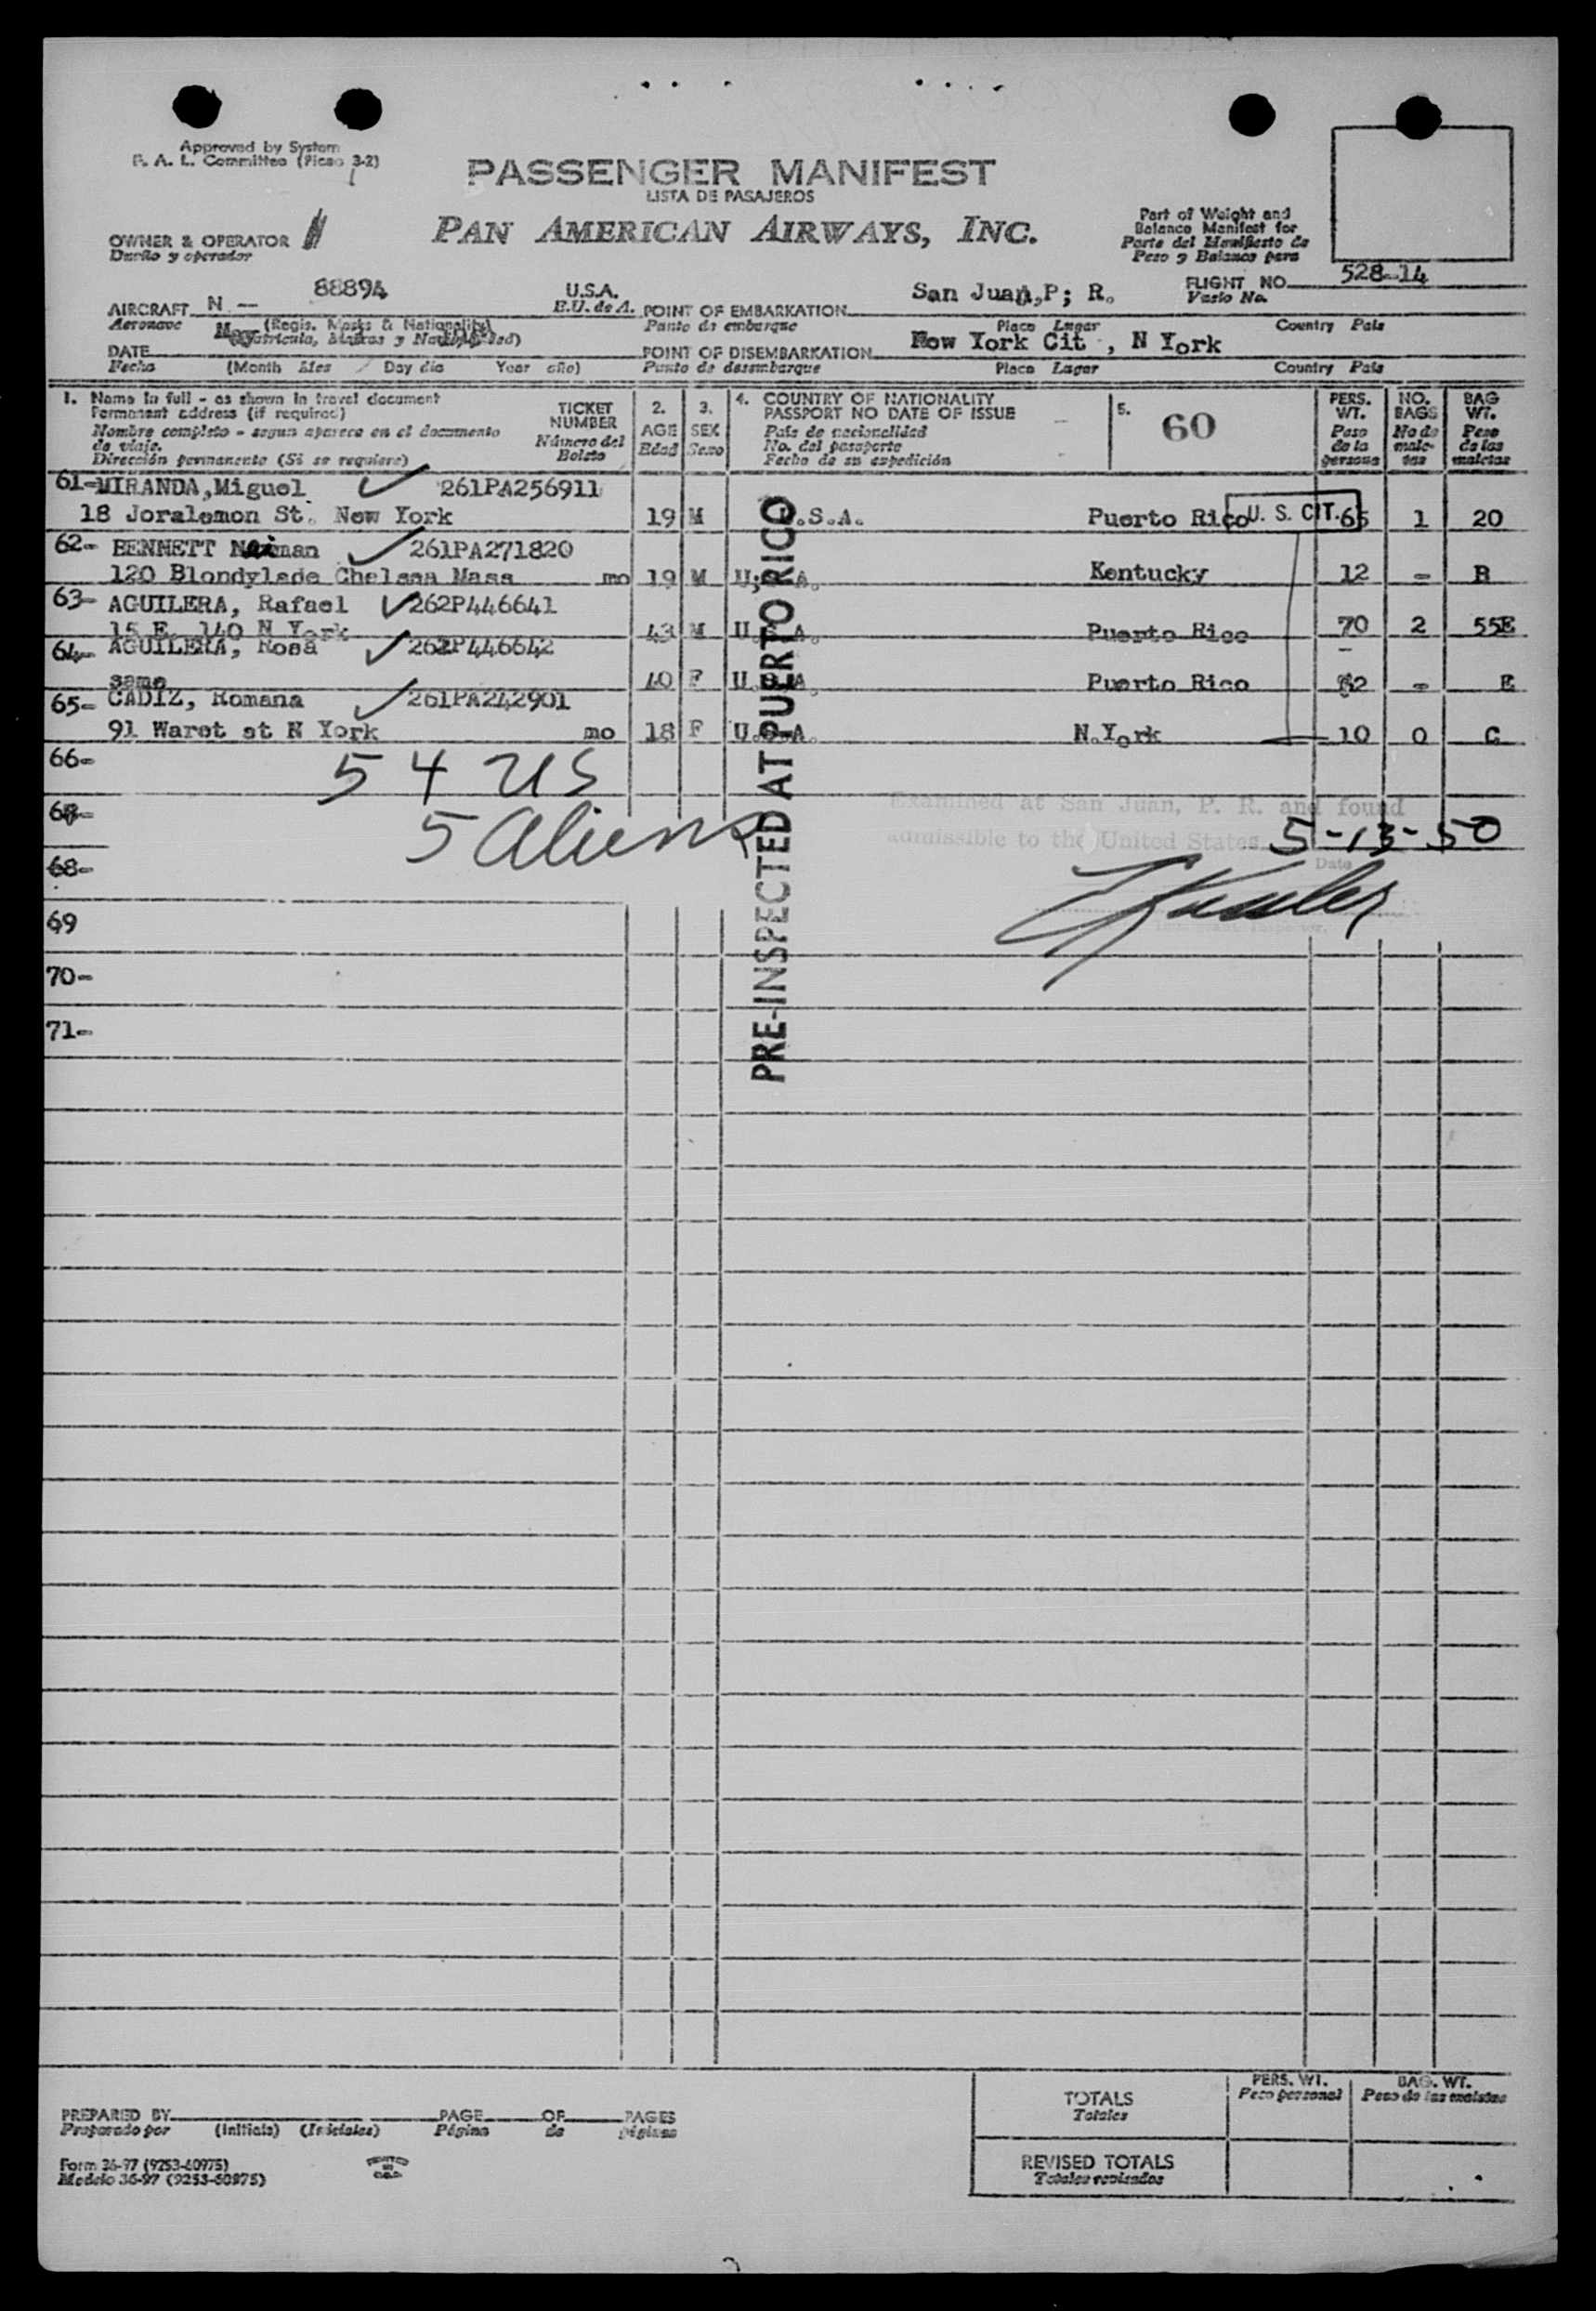 Approved by System
P. A. L. Committee (Picao 3-2)
PASSENGER MANIFEST
LISTA DE PASAJEROS
PAN AMERICAN AIRWAYS, INC.
OWNER & OPERATOR
Dueño y operador
Part of Weight and
Balance Manifest for
Parte del Manifiesto de
Peso y Balance para
FLIGHT NO. 528-14
Vuelo No.
AIRCRAFT N - 88894 U.S.A.
Aeronave (Regis. Marks & Nationality) E.U. de A.
POINT OF EMBARKATION San Juan,P; R.
Punto de embarque Place Lugar Country País
DATE
Fecha (Month Mes / Day día Year año)
POINT OF DISEMBARKATION New York Cit , N York
Punto de desembarque Place Lugar Country País
1. Name in full - as shown in travel document
Permanent address (if required)
Nombre completo - segun aparece en el documento
de viaje.
Dirección permanente (Si se requiere)
TICKET
NUMBER
Número del
Boleto
2.
AGE
Edad
3.
SEX
Sexo
4. COUNTRY OF NATIONALITY
PASSPORT NO DATE OF ISSUE
País de nacionalidad
No. del pasaporte
Fecha de su expedición
5. 60
PERS.
WT.
Peso
de la
persona
NO.
BAGS
No de
male-
tas
BAG
WT.
Peso
de las
maletas
61-MIRANDA,Miguel 261PA256911
18 Joralemon St. New York 19 M U.S.A. Puerto Rico U. S. CIT. 65 1 20
62- BENNETT Neiman 261PA271820
120 Blondylade Chelsaa Mass mo 19 M U;S.A. Kentucky 12 - B
63- AGUILERA, Rafael 262P446641
15 E. 140 N York 43 M U.S.A. Puerto Rico 70 2 55E
64- AGUILERA, Rosa 262P446642
same 40 F U.S.A. Puerto Rico 62 - E
65- CADIZ, Romana 261PA242901
91 Waret st N York mo 18 F U.S.A. N.York 10 0 C
66-
54 US
67-
5 aliens
68-
69
70-
71-
PRE-INSPECTED AT PUERTO RICO
Examined at San Juan, P. R. and found
admissible to the United States 5-13-50
Date
PREPARED BY PAGE OF PAGES
Preparado por (Initials) (Iniciales) Página de páginas
Form 36-97 (9253-60975)
Modelo 36-97 (9253-60975)
TOTALS
Totales
PERS. WT.
Peso personal
BAG. WT.
Peso de las maletas
REVISED TOTALS
Totales revisados